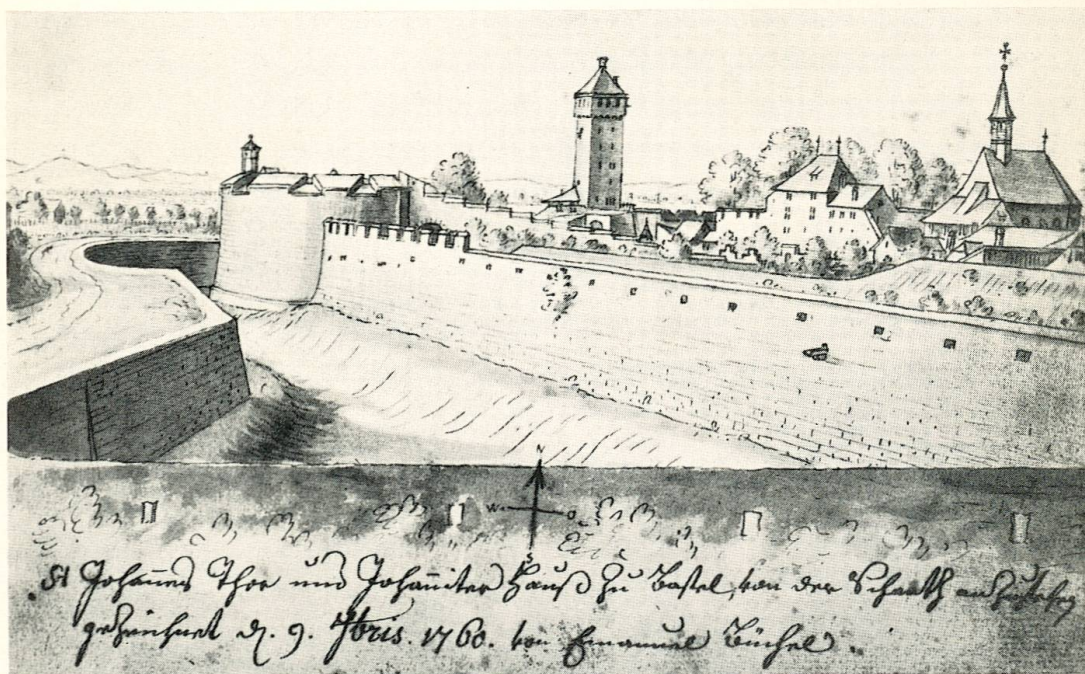 N
W O
S
St Johan̄es Thor und Johan̄iter Hauß zu Basel, von der Schantz anzusehen
gezeichnet d. 9. 7bris. 1760. von Emanuel Büchel.